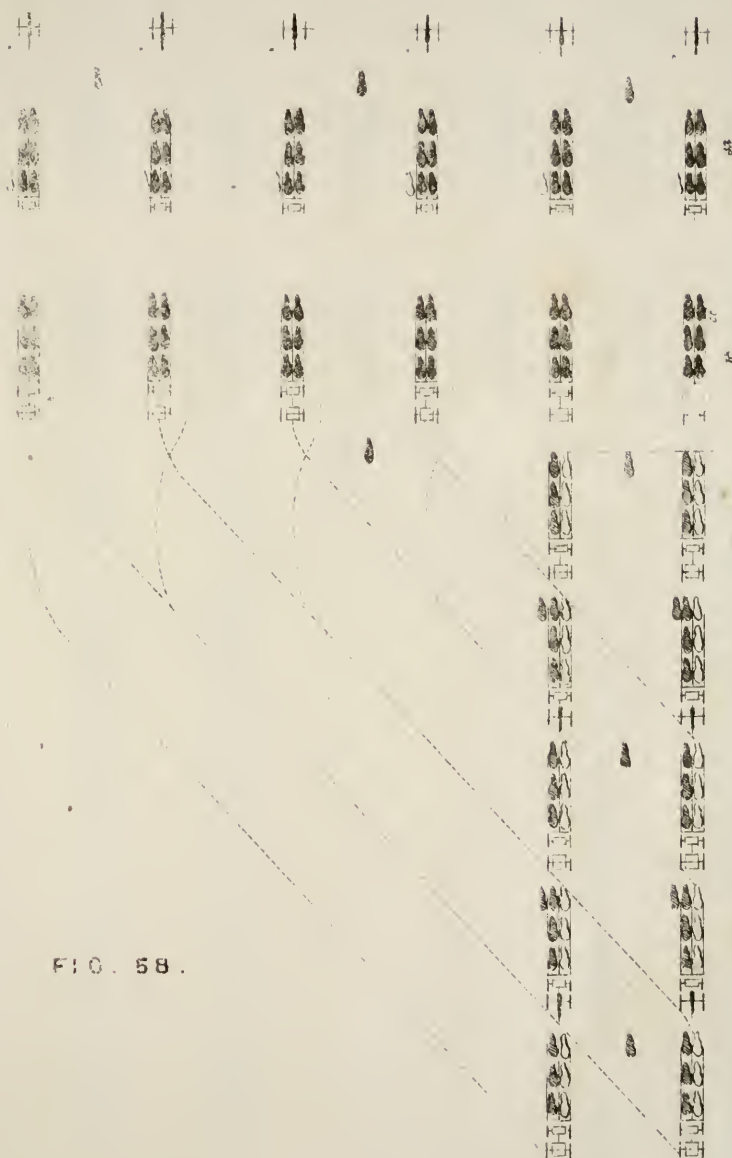 FIG. 58.